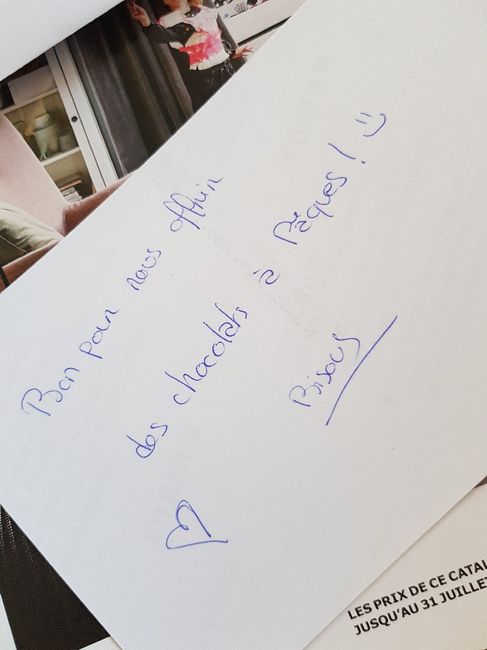 Bon pour nous offrir
des chocolats à Pâques! :)
Bisous
♡
LES PRIX DE CE CATAL
JUSQU'AU 31 JUILLET